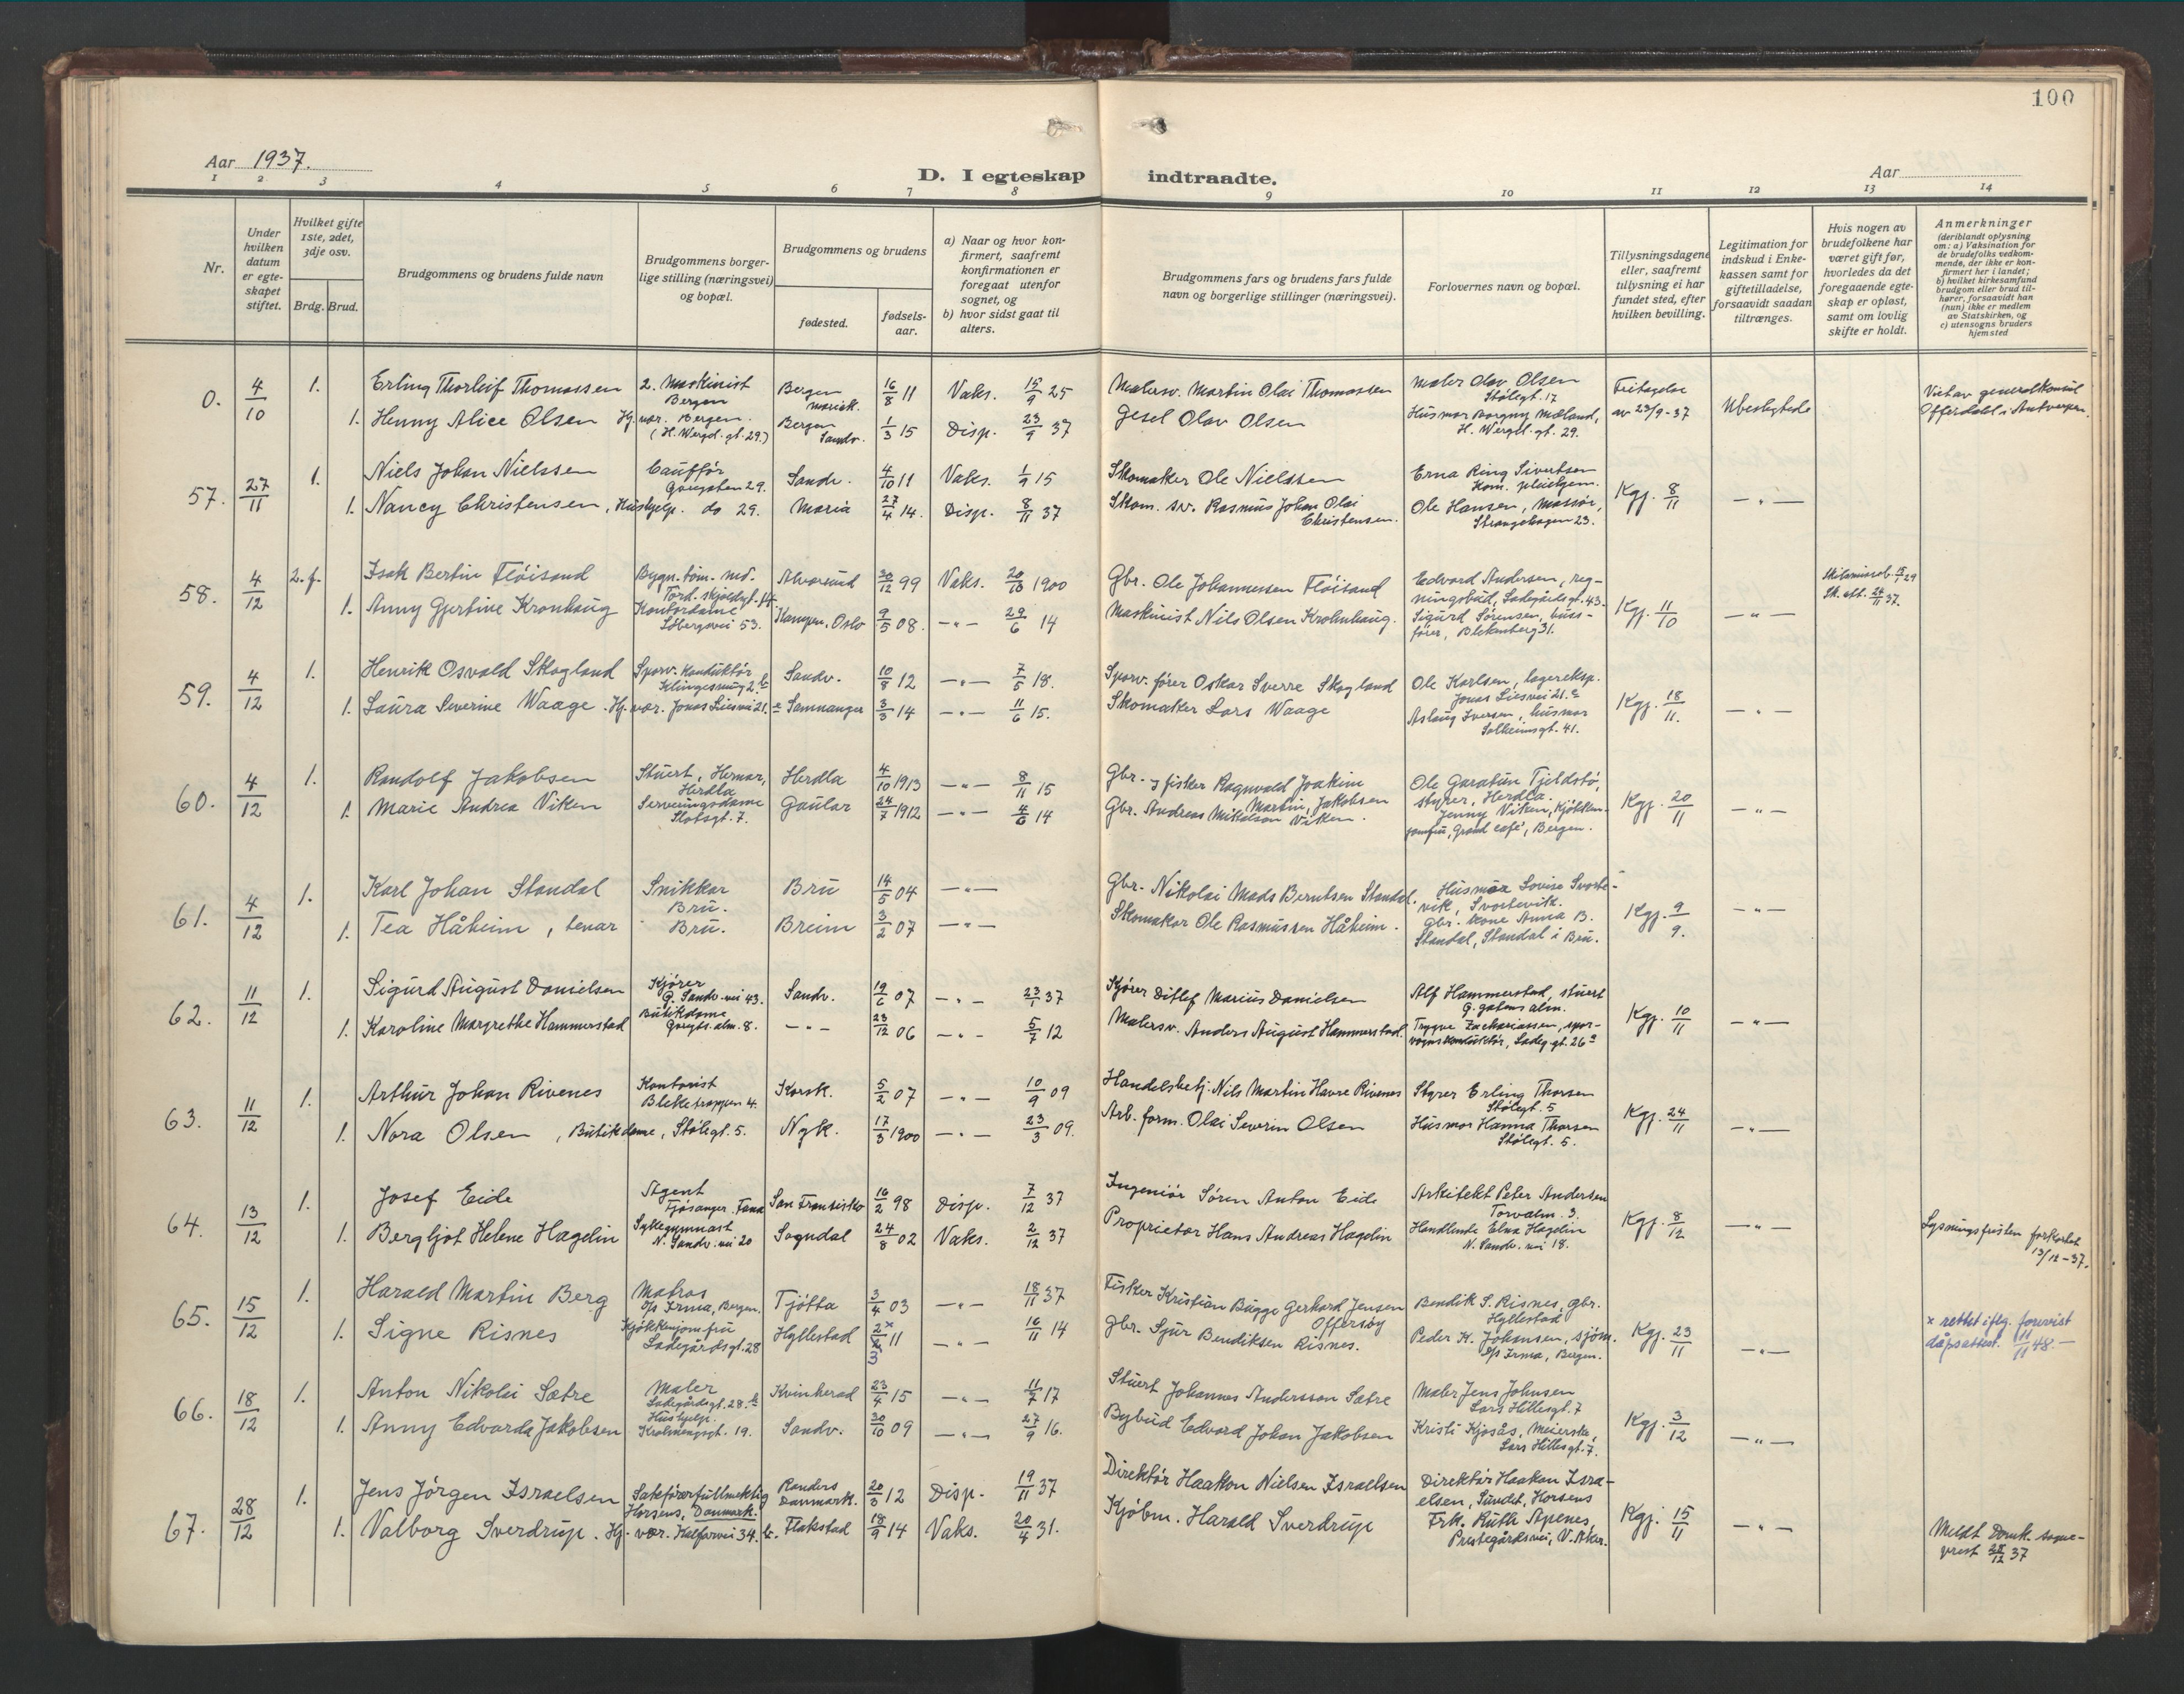 100
Aar 1937.
D. Iegteskap indtraadte.
Aar
1 2 3 4 5 6 7 8 9 10 11 12 13 14
Nr.
Under hvilken datum er egteskapet stiftet.
Hvilket gifte 1ste, 2det, 3dje osv.
Brdg. Brud.
Brudgommens og brudens fulde navn
Brudgommens borgerlige stilling (næringsvei) og bopæl.
Brudgommens og brudens
fødested.
fødselsaar.
a) Naar og hvor konfirmert, saafremt konfirmationen er foregaat utenfor sognet, og
b) hvor sidst gaat til alters.
Brudgommens fars og brudens fars fulde navn og borgerlige stillinger (næringsvei).
Forlovernes navn og bopæl.
Tillysningsdagene eller, saafremt tillysning ei har fundet sted, efter hvilken bevilling.
Legitimation for indskud i Enkekassen samt for giftetilladelse, forsaavidt saadan tiltrænges.
Hvis nogen av brudefolkene har været gift før, hvorledes da det foregaaende egteskap er opløst, samt om lovlig skifte er holdt.
Anmerkninger
(deriblandt oplysning om: a) Vaksination for de brudefolks vedkommende, der ikke er konfirmert her i landet;
b) hvilket kirkesamfund brudgom eller brud tilhører, forsaavidt han (hun) ikke er medlem av Statskirken, og
c) utensogns bruders hjemsted
0. 4/10 1. Erling Thorleif Thomassen 2. maskinist Bergen Bergen Mariak. 16/8 11 Vaks. 15/9 25 Malersv. Martin Olai Thomassen Maler Olav Olsen Stølegt. 17 Fritagelse av 23/9-37 Ubeskyttede Viet av generalkonsul Offerdahl i Antwerpen.
1. Henny Alice Olsen Hj. vær. Bergen. (H. Wergel. gt. 29.) Bergen Sandv. 1/3 15 Disp. 23/9 37 Gesel Olav Olsen Husmor Borgny Mæland, H. Wergel. gt. 29.
57. 27/11 1. Niels Johan Nielssen Cauffør Gaugaten 29. Sandv. 4/10 11 Vaks. 1/9 15 Skomaker Ole Nielssen Erna Ring Sivertsen Kom. pleiehjem. Kgj. 8/11 —"—
1. Nancy Christensen, Hushjelp. do 29. Maria 27/4 14. Disp. 8/11 37 Skom. sv. Rasmus Johan Olai Christensen. Ole Hansen, massør, Strangehagen 23.
58. 4/12 2. f. Isak Bertin Fløisand Bygn. tøm. md. Tord. skjoldsgt. 14. Alversund 30/12 99 Vaks. 20/10 1900 Gbr. Ole Johannessen Fløisand Edvard Andersen, regningsbud, Ladegårdsgt. 43. Kgj. 11/10 —"— Sk. eft. 24/11 37.
1. Anny Gjertine Kronhaug Kontordame Løbergsvei 53. Kampen, Oslo 9/5 08. —"— 29/6 14 Maskinist Nils Olsen Krohnhaug. Sigurd Sørensen, bussfører, Blekenberg 31.
59. 4/12 1. Henrik Osvald Skogland Sporv. konduktør Klingesmug 2.b Sandv. 10/8 12 —"— 7/5 18. Sporv. fører Oskar Sverre Skogland Ole Karlsen, lagereksp. Jonas Liesvei 21.e Kgj. 18/11. —"—
1. Laura Severine Waage. Hj. vær. Jonas Liesvei 21.e Samnanger 3/3 14 —"— 11/6 15. Skomaker Lars Waage Aslaug Iversen, husmor Solheimsgt. 41.
60. 4/12 1. Randolf Jakobsen Stuert, Hernar, Herdla Herdla 4/10 1913 —"— 8/11 15 Gbr. & fisker Ragnvald Joakim Martin, Jakobsen Ole Garatun Tjeldstø, styrer, Herdla. Kgj. 20/11 —"—
1. Marie Andrea Viken Serveringsdame Slotsgt. 7. Gaular 24/7 1912 —"— 4/6 14 Gbr. Andreas Mikelson Viken. Jenny Viken, Kjøkkenjomfru, Grand café, Bergen.
61. 4/12 1. Karl Johan Standal Snikkar Bru. Bru 14/5 04 —"— Gbr. Nikolai Mads Berntsen Standal. Husmor Lovise Svortevik, Svortevik. Kgj. 9/9. —"—
1. Tea Håheim, tenar Bru. Breim 3/2 07 —"— Skomaker Ole Rasmussen Håheim. Gbr. kone Anna B. Standal, Standal i Bru.
62. 11/12 1. Sigurd August Danielsen Kjører G. Sandv. vei 43. Sandv. 19/6 07 —"— 23/1 37 Kjører Ditlef Marius Danielsen Alf Hammerstad, stuert G. gatens alm. Kgj. 10/11 —"—
1. Karoline Margrethe Hammerstad Butikdame Gaugts. alm. 8. —"— 23/12 06 —"— 5/7 12 Malersv. Anders August Hammerstad. Trygve Zachariassen, sporvognskonduktør, Ladeg. gt. 26a
63. 11/12 1. Arthur Johan Rivenes Kontorist Bleketrappen 4. Korsk. 5/2 07 —"— 10/9 09 Handelsbetj. Nils Martin Havre Rivenes Styrer Erling Thorsen Stølegt. 5 Kgj. 24/11 —"—
1. Nora Olsen, Butikdame, Stølegt. 5. Nyk. 17/3 1900 —"— 23/3 09. Arb. form. Olai Severin Olsen Husmor Hanna Thorsen Stølegt. 5.
64. 13/12 1. Josef Eide Agent Fjøsanger. Fana San Fransisko 16/2 98 Disp. 7/12 37 Ingeniør Søren Anton Eide Arkitekt Peter Andersen Torvalm. 3. Kgj. 8/12 —"— Lysningsfristen forkortet 13/12-37.
1. Bergljot Helene Hagelin Sykegymnast N. Sandv. vei 20 Sogndal 24/8 02 Vaks. 2/12 37 Proprietær Hans Andreas Hagelin Handlende Elna Hagelin N. Sandv. vei 18.
65. 15/12 1. Harald Martin Berg Matros D/s Irma, Bergen. Tjøtta 3/4 03 —"— 18/11 37 Fisker Kristian Bugge Gerhard Jensen Offersøy Bendik S. Risnes, gbr. Hyllestad Kgj. 23/11 —"— x rettet iflg. forevist dåpsattest. 11/11 48.—
1. Signe Risnes Kjøkkenjomfru Ladegårdsgt. 28 Hyllestad 2x/3 11 —"— 16/11 14 Gbr. Sjur Bendiksen Risnes. Peder K. Johnsen, sjøm. D/s Irma, Bergen.
66. 18/12 1. Anton Nikolai Sætre Maler Ladegårdsgt. 28.b Kvinherad 23/4 15 —"— 11/7 17 Stuert Johannes Anderssen Sætre Maler Jens Johnsen Lars Hillesgt. 7 Kgj. 3/12 —"—
1. Anny Edvarda Jakobsen Hushjelp. Krohnengsgt. 19. Sandv. 30/10 09 —"— 27/9 16. Bybud Edvard Johan Jakobsen Kristi Kjosås, Meierske, Lars Hillesgt. 7.
67. 28/12 1. Jens Jörgen Israelsen Sakførerfullmektig Horsens, Danmark. Randers Danmark. 20/3 12 Disp. 19/11 37 Direktör Haakon Nielsen Israelsen Direktör Haakon Israelsen, Sundet, Horsens Kgj. 15/11 —"— Meldt Domk. sogneprest 28/12 37
1. Valborg Sverdrup. Hj. vær. Kalfarvei 34.b. Flakstad 18/9 14 Vaks. 20/4 31. Kjøbm. Harald Sverdrup Frk. Ruth Apenes, Prestegårdsvei, V. Aker.